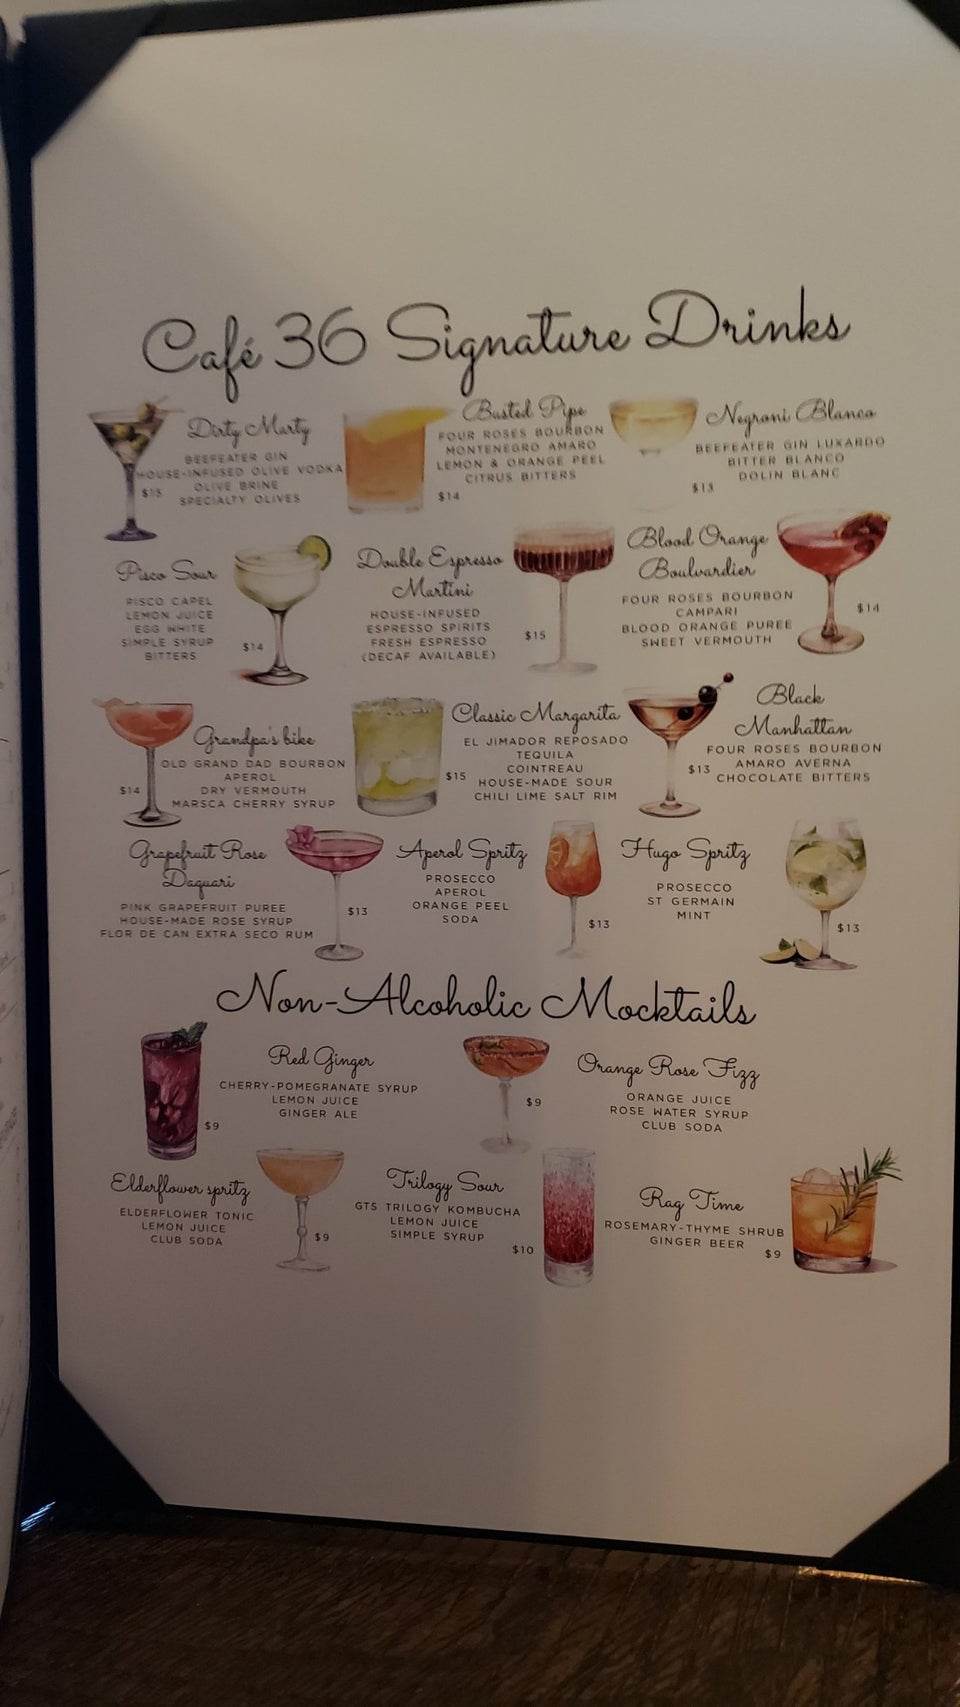 Café 36 Signature Drinks
Dirty Marty
BEEFEATER GIN
HOUSE-INFUSED OLIVE VODKA
OLIVE BRINE
SPECIALTY OLIVES
$15
Busted Pipe
FOUR ROSES BOURBON
MONTENEGRO AMARO
LEMON & ORANGE PEEL
CITRUS BITTERS
$14
Negroni Blanco
BEEFEATER GIN LUXARDO
BITTER BLANCO
DOLIN BLANC
$13
Pisco Sour
PISCO CAPEL
LEMON JUICE
EGG WHITE
SIMPLE SYRUP
BITTERS
$14
Double Espresso
Martini
HOUSE-INFUSED
ESPRESSO SPIRITS
FRESH ESPRESSO
(DECAF AVAILABLE)
$15
Blood Orange
Boulvardier
FOUR ROSES BOURBON
CAMPARI
BLOOD ORANGE PUREE
SWEET VERMOUTH
$14
Grandpa's bike
OLD GRAND DAD BOURBON
APEROL
DRY VERMOUTH
MARSCA CHERRY SYRUP
$14
Classic Margarita
EL JIMADOR REPOSADO
TEQUILA
COINTREAU
HOUSE-MADE SOUR
CHILI LIME SALT RIM
$15
Black
Manhattan
FOUR ROSES BOURBON
AMARO AVERNA
CHOCOLATE BITTERS
$13
Grapefruit Rose
Daquari
PINK GRAPEFRUIT PUREE
HOUSE-MADE ROSE SYRUP
FLOR DE CAN EXTRA SECO RUM
$13
Aperol Spritz
PROSECCO
APEROL
ORANGE PEEL
SODA
$13
Hugo Spritz
PROSECCO
ST GERMAIN
MINT
$13
Non-Alcoholic Mocktails
Red Ginger
CHERRY-POMEGRANATE SYRUP
LEMON JUICE
GINGER ALE
$9
Orange Rose Fizz
ORANGE JUICE
ROSE WATER SYRUP
CLUB SODA
$9
Elderflower spritz
ELDERFLOWER TONIC
LEMON JUICE
CLUB SODA
$9
Trilogy Sour
GTS TRILOGY KOMBUCHA
LEMON JUICE
SIMPLE SYRUP
$10
Rag Time
ROSEMARY-THYME SHRUB
GINGER BEER
$9